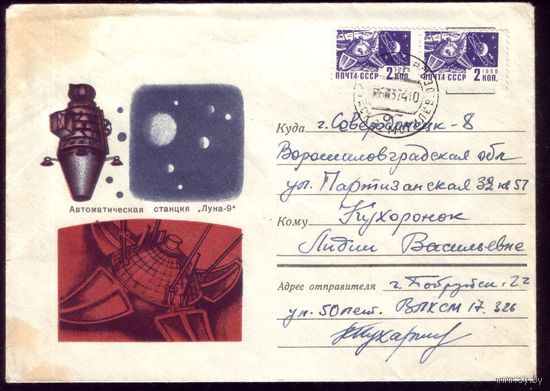 ПОЧТА СССР 2 КОП.
ПОЧТА СССР 1966 2 КОП.
Куда г. Северодонецк-8
Ворошиловградская обл
ул. Партизанская 32 кв 57
Автоматическая станция „Луна-9“
Кому Кухоронок
Лидии Васильевне
Адрес отправителя г. Бобруйск-22
ул. 50 лет. ВЛКСМ 17. 326